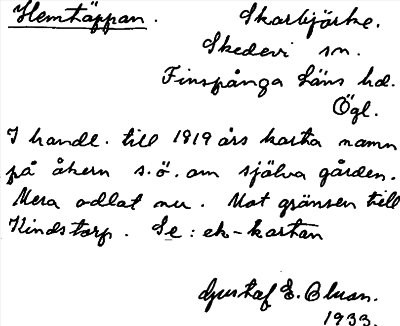 Hemtäppan. Skarbjörke.
Skedevi sn.
Finspånga Läns hd.
Ögl.
I handl. till 1819 års karta namn
på åkern s.ö. om själva gården.
Mera odlat nu. Mot gränsen till
Kindstorp. Se: ek-kartan
Gustaf E. Olson.
1933.